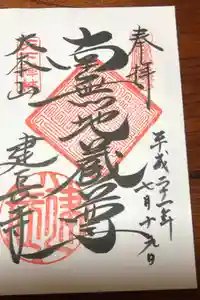 奉拝
平成二十一年
七月十九日
南無地蔵尊
大本山
建長寺